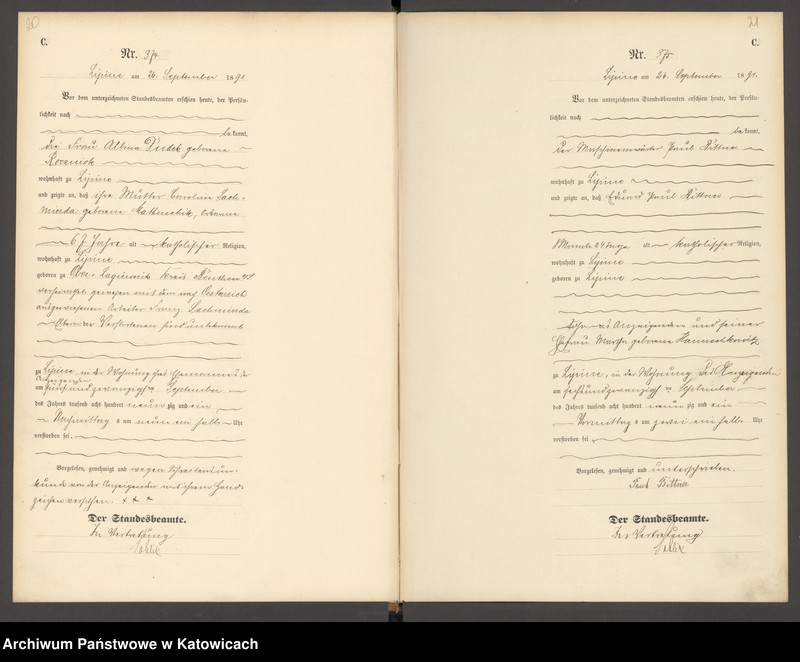 20
C.
Nr. 374
Lipine am 26. September 1891.
Vor dem unterzeichneten Standesbeamten erschien heute, der Persön-
lichkeit nach
bekannt,
die Frau Albina Dudek geborene
wohnhaft zu Lipine
und zeigte an, daß ihre Mutter Caroline
geborene
67 Jahre alt katholischer Religion,
wohnhaft zu Lipine
geboren zu Ober-Lagiewnik Kreis Beuthen
verheirathet gewesen mit dem nach Oesterreich
ausgewiesenen Arbeiter Franz
Eltern der Verstorbenen sind unbekannt
zu Lipine, in der Wohnung des Ehemannes der
Anzeigenden
am fünfundzwanzigsten September
des Jahres tausend acht hundert neunzig und ein
Nachmittag s um neun ein halb Uhr
verstorben sei.
Vorgelesen, genehmigt und wegen Schreibensun-
kunde von der Anzeigenden mit ihrem Hand-
zeichen versehen. + + +
Der Standesbeamte.
In Vertretung
21
C.
Nr. 375
Lipine am 26. September 1891.
Vor dem unterzeichneten Standesbeamten erschien heute, der Persön-
lichkeit nach
bekannt,
der Maschinenwärter Paul Bittner
wohnhaft zu Lipine
und zeigte an, daß Eduard Paul Bittner
8 Monate 24 Tage alt katholischer Religion,
wohnhaft zu Lipine
geboren zu Lipine
Sohn des Anzeigenden und seiner
Ehefrau Martha geborene
zu Lipine, in der Wohnung des Anzeigenden
am sechsundzwanzigsten September
des Jahres tausend acht hundert neunzig und ein
Vormittag s um zwei ein halb Uhr
verstorben sei.
Vorgelesen, genehmigt und unterschrieben.
Paul Bittner
Der Standesbeamte.
In Vertretung
Archiwum Państwowe w Katowicach